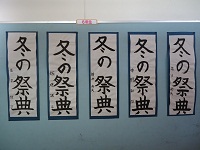 冬の祭典
冬の祭典
冬の祭典
冬の祭典
冬の祭典